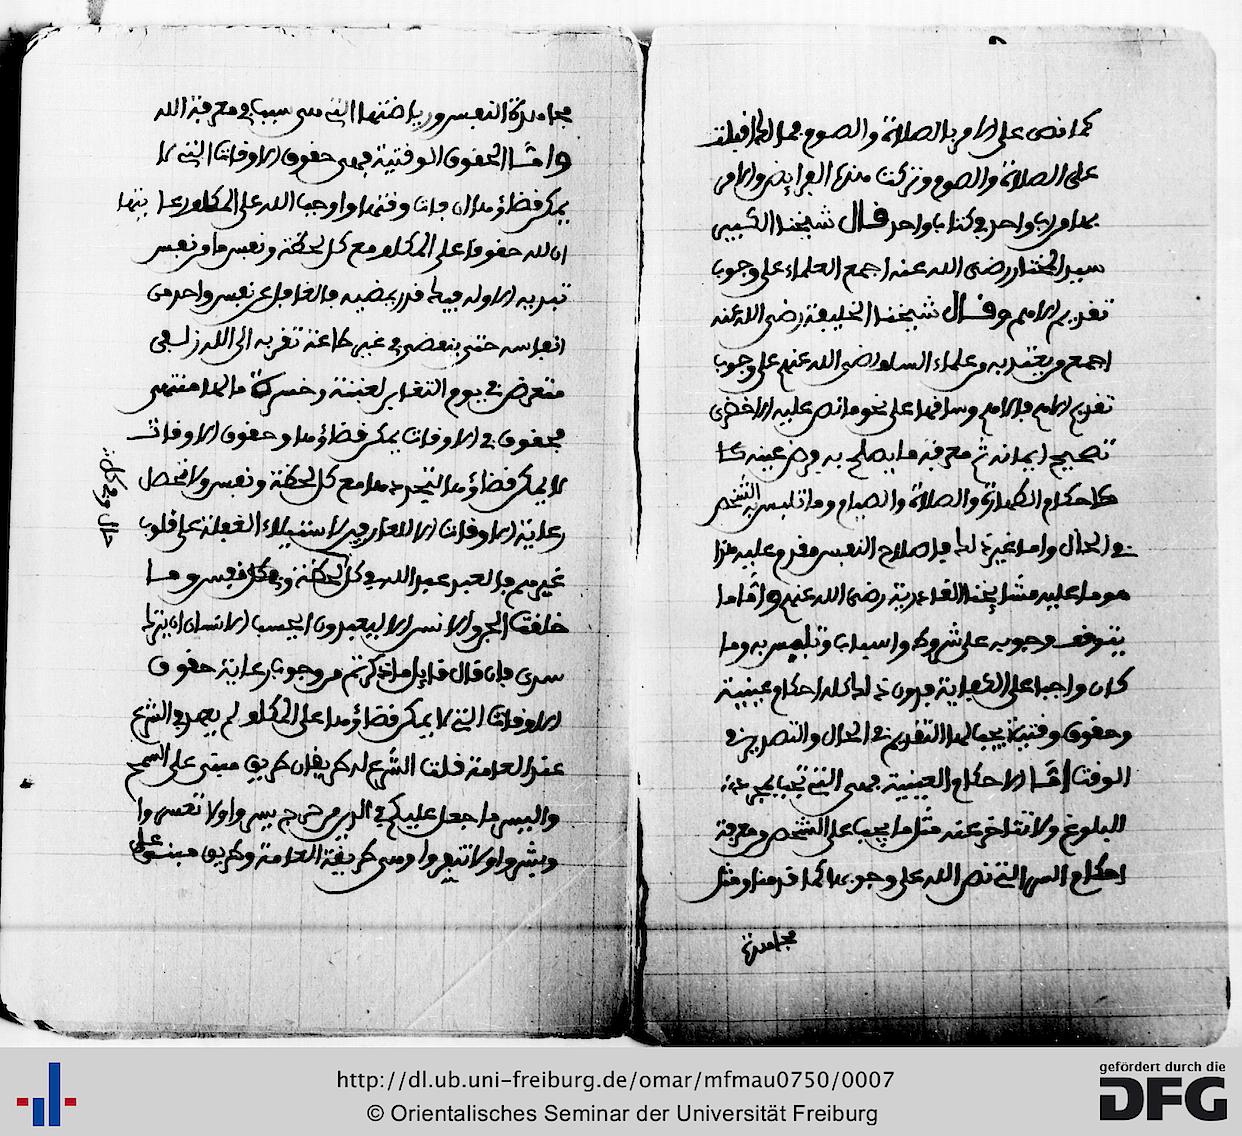 كما نص على الامر بالصلاة والصوم فما لك اقبلت
على الصلاة والصوم وتركت منها الفرايض والامر
بها امر واحد في كتاب واحد قال شيخنا الكبير
سيد المختار رضى الله عنه اجمع العلماء على وجوب
تقديم الاهم وقال شيخنا الخليفة رضى الله عنه
اجمع من يعتد به من علماء السلف رضى الله عنهم على وجوب
تقديم الاهم فالاهم وساقها على نحو ما نص عليه الاخضرى
تصحيح ايمانه ثم معرفة ما يصلح به فرض عينه
كاحكام الطهارة والصلاة والصيام وما تلبس به الشخص
في الحال واما غير ذلك فاصلاح النفس مقدم عليه هذا
هو ما عليه مشايخنا القادرية رضى الله عنهم واما ما
يتوقف وجوبه على شروط واسباب وتلبس به وما
كان واجبا على الكفاية فدون ذلك احكام عينية
وحقوق وقتية يجب لها التقديم في الحال والتصدير في
الوقت اما الاحكام العينية فهى التي تجب بمجرد
البلوغ ولا تتاخر عنه مثل ما يجب على الشخص ومعرفة
احكام التي نص الله على وجوبها كما قدمنا ومثل
مجاهدة
مجاهدة النفس ورياضتها التي هى سبب في معرفة الله
واما الحقوق الوقتية فهى حقوق الاوقات التي لا
يمكن قضاؤها ان فات وقتها واوجب الله على المكلف رعايتها
ان لله حقوقا على المكلف مع كل لحظة ونفس ما من نفس
تبديه الا وله فيك قدر يمضيه فالغافل عن نفس واحد من
انفاسه حتى ينقضى في غير طاعة تقربه الى الله زلفى
متعرض في يوم التغابن لغبنة وخسرة ما لها منتهى
فحقوق في الاوقات يمكن قضاؤها وحقوق الاوقات
لا يمكن قضاؤها لتجددها مع كل لحظة ونفس ولا تحصل
رعاية الاوقات الا للعارفين لاستيلاء الغفلة على قلوب
غيرهم فالعبد عبد الله في كل لحظة وفي كل نفس وما
خلقت الجن والانس الا ليعبدون ايحسب الانسان ان يترك
سدى فان قال قايل ما ذكرتم من وجوب رعاية حقوق
الاوقات التي لا يمكن قضاؤها على المكلف لم يعهد في الشرع
عند العامة قلنا الشرع له طريقان طريق مبنى على السمح
واليسر ما جعل عليكم في الدين من حرج يسروا ولا تعسروا
وبشروا ولا تنفروا وهى طريقة العامة وطريق مبنى على
حال وفي كل
http://dl.ub.uni-freiburg.de/omar/mfmau0750/0007
© Orientalisches Seminar der Universität Freiburg
gefördert durch die
DFG